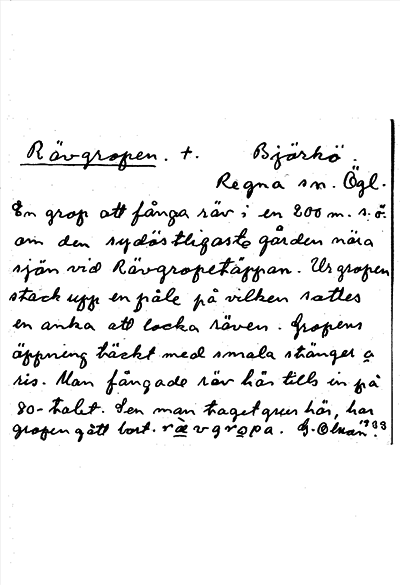 Rävgropen. +. Björkö.
Regna sn. Ögl.
En grop att fånga räv i en 200 m. s. ö.
om den sydöstligaste gården nära
sjön vid Rävgropetäppan. Ur gropen
stack upp en påle på vilken sattes
en anka att locka räven. Gropens
öppning täckt med smala stänger o
ris. Man fångade räv här tills in på
80-talet. Sen man taget grus här, har
gropen gått bort. rævgropa. G. Olsson 1933